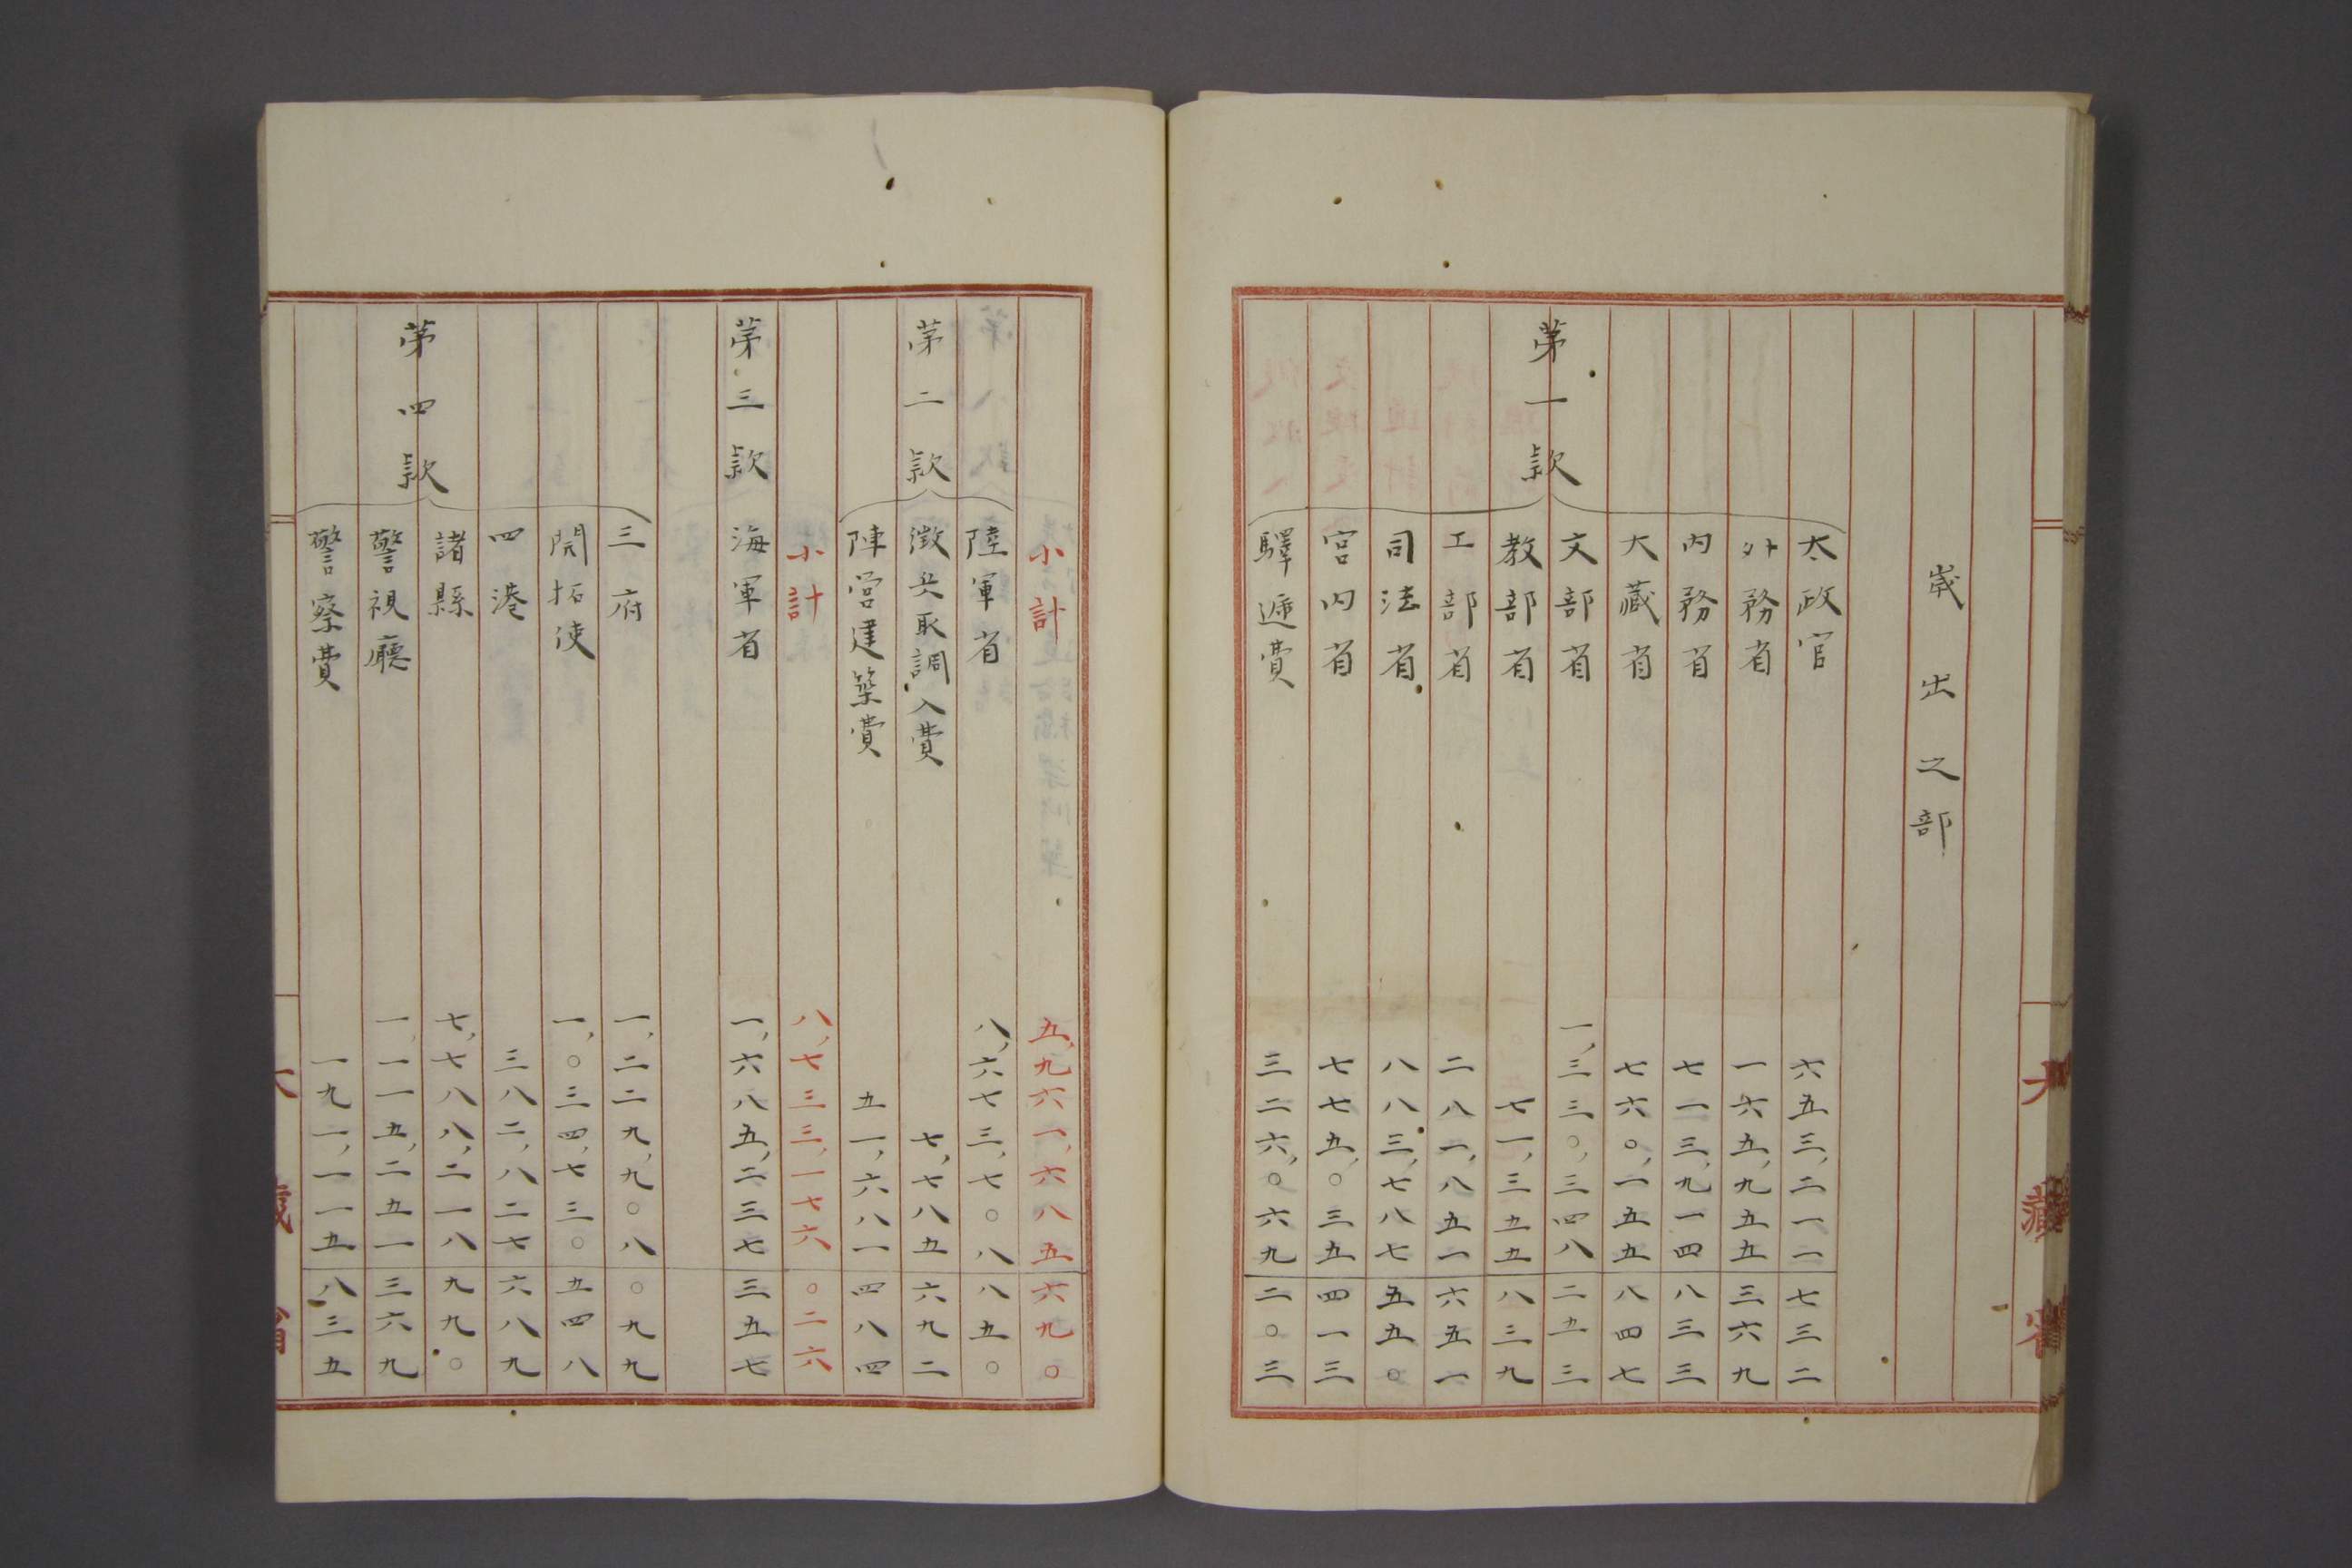 大藏省
歳出之部
第一款
太政官 六五三,二一一 七三二
外務省 一六五,九五五 三六九
内務省 七一三,九一四 八三三
大藏省 七六〇,一五五 八四七
文部省 一,三三〇,三四八 二五三
教部省 七一,三五五 八三九
工部省 二八一,八五一 六五一
司法省 八八三,七八七 五五〇
宮内省 七七五,〇三五 四一三
驛遞費 三二六,〇六九 二〇三
小計 五,九六一,六八五 六九〇
第二款
陸軍省 八,六七三,七〇八 八五〇
徴兵取調入費 七,七八五 六九二
陣営建築費 五一,六八一 四八四
小計 八,七三三,一七六 〇二六
第三款 海軍省 一,六八五,二三七 三五七
第四款
三府 一,二二九,九〇八 〇九九
開拓使 一,〇三四,七三〇 五四八
四港 三八二,八二七 六八九
諸縣 七,七八八,二一八 九九〇
警視廳 一,一一五,二五一 三六九
警察費 一九一,一一五 八三五
大藏省